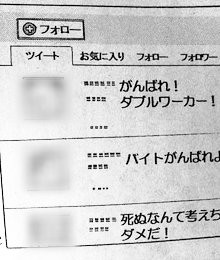 フォロー
ツイート お気に入り フォロー フォロワー
がんばれ!
ダブルワーカー!
バイトがんばれよ
死ぬなんて考えち
ダメだ!